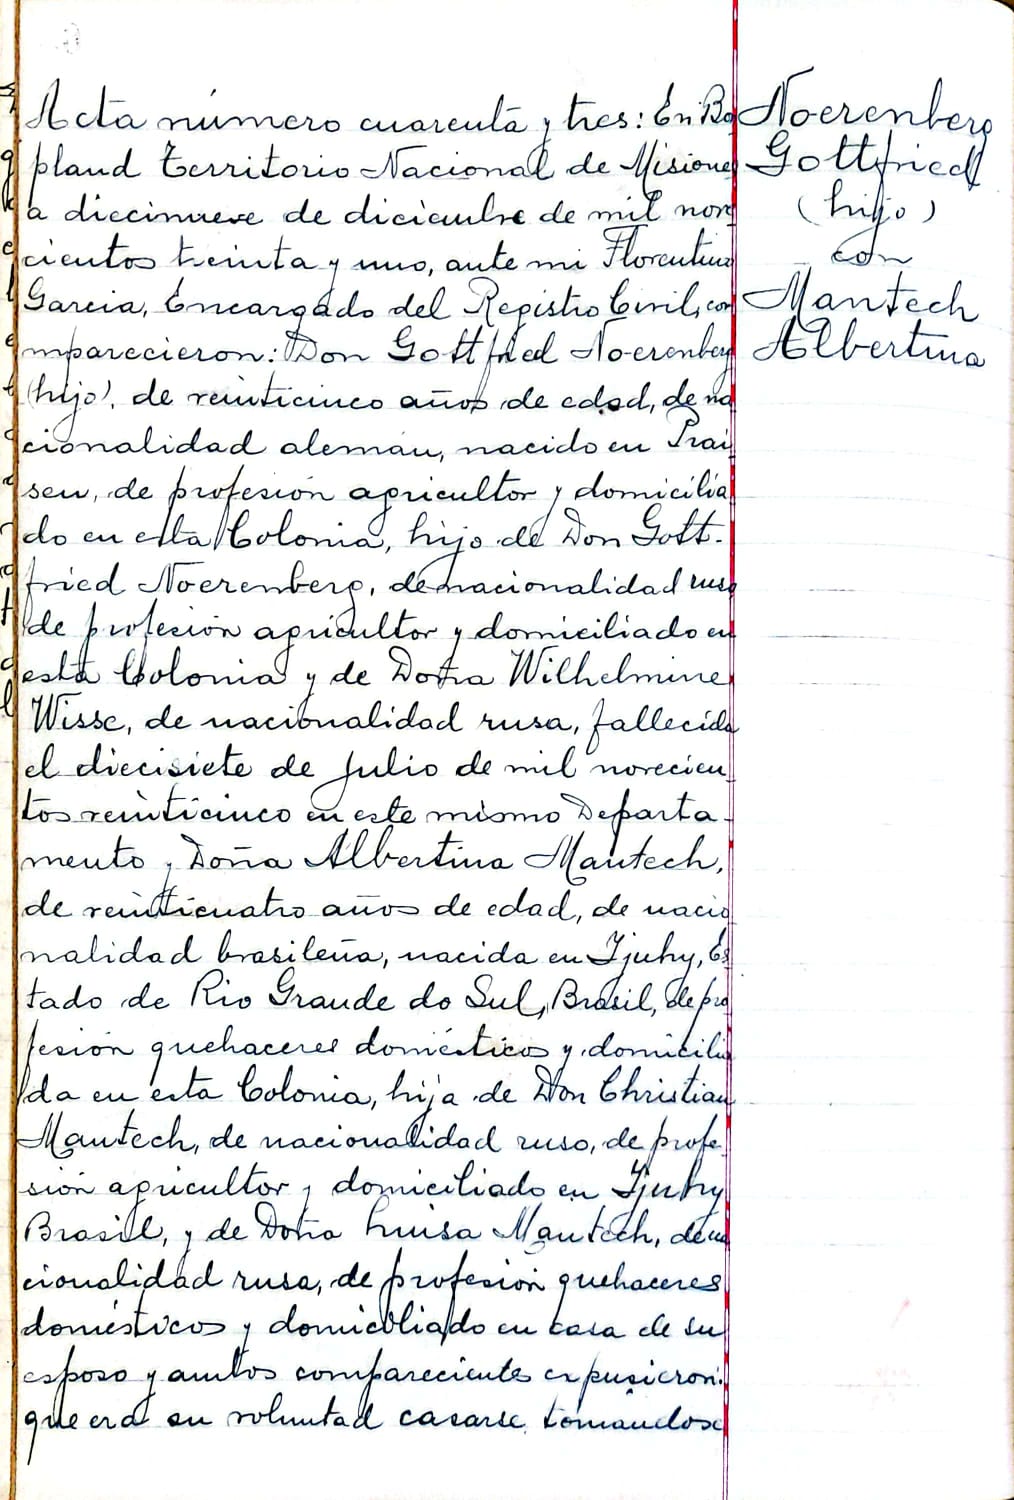 Acta número cuarenta y tres: En Bo
pland Territorio Nacional de Misiones
a diecinueve de diciembre de mil nove
cientos treinta y uno, ante mi Florentino
Garcia, Encargado del Registro Civil, co
mparecieron: Don Gottfried Noerenberg
(hijo), de veinticinco años de edad, de na
cionalidad alemán, nacido en Prai
sen, de profesión agricultor y domicilia
do en esta Colonia, hijo de Don Gott-
fried Noerenberg, de nacionalidad ruso
de profesión agricultor y domiciliado en
esta Colonia y de Doña Wilhelmine
Wisse, de nacionalidad rusa, fallecida
el diecisiete de Julio de mil novecien
tos veinticinco en este mismo Departa-
mento y Doña Albertina Mantech,
de veinticuatro años de edad, de nacio
nalidad brasileña, nacida en Ijuhy, Es
tado de Rio Grande do Sul, Brasil, de pro
fesión quehaceres domésticos y domicilia
da en esta Colonia, hija de Don Christian
Mantech, de nacionalidad ruso, de profe
sión agricultor y domiciliado en Ijuhy
Brasil, y de Doña Luisa Mantech, de na
cionalidad rusa, de profesión quehaceres
domésticos y domiciliado en casa de su
esposo y ambos comparecientes expusieron:
que era su voluntad casarse tomandose
Noerenberg
Gottfried
(hijo)
con
Mantech
Albertina